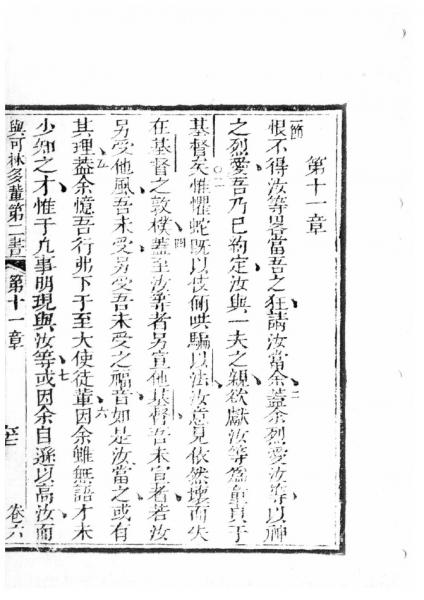 第十一章
一節
恨不得汝等畧當吾之狂請汝當余蓋余烈愛汝等以神
二
之烈愛吾乃已約定汝與一夫之親欲獻汝等為童貞于
三
基督矣惟懼蛇既以伎倆哄騙以法汝意見依然壞而失
在基督之敦樸蓋至汝等者另宣他基督吾未宣者若汝
四
另受他風吾未受另受吾未受之福音如是汝當之或有
其理蓋余憶吾行弗下于至大使徒輩因余雖無語才未
五
六
少知之才惟于凡事明現與汝等或因余自遜以高汝而
七
與可林多輩第二書
第十一章
卷六